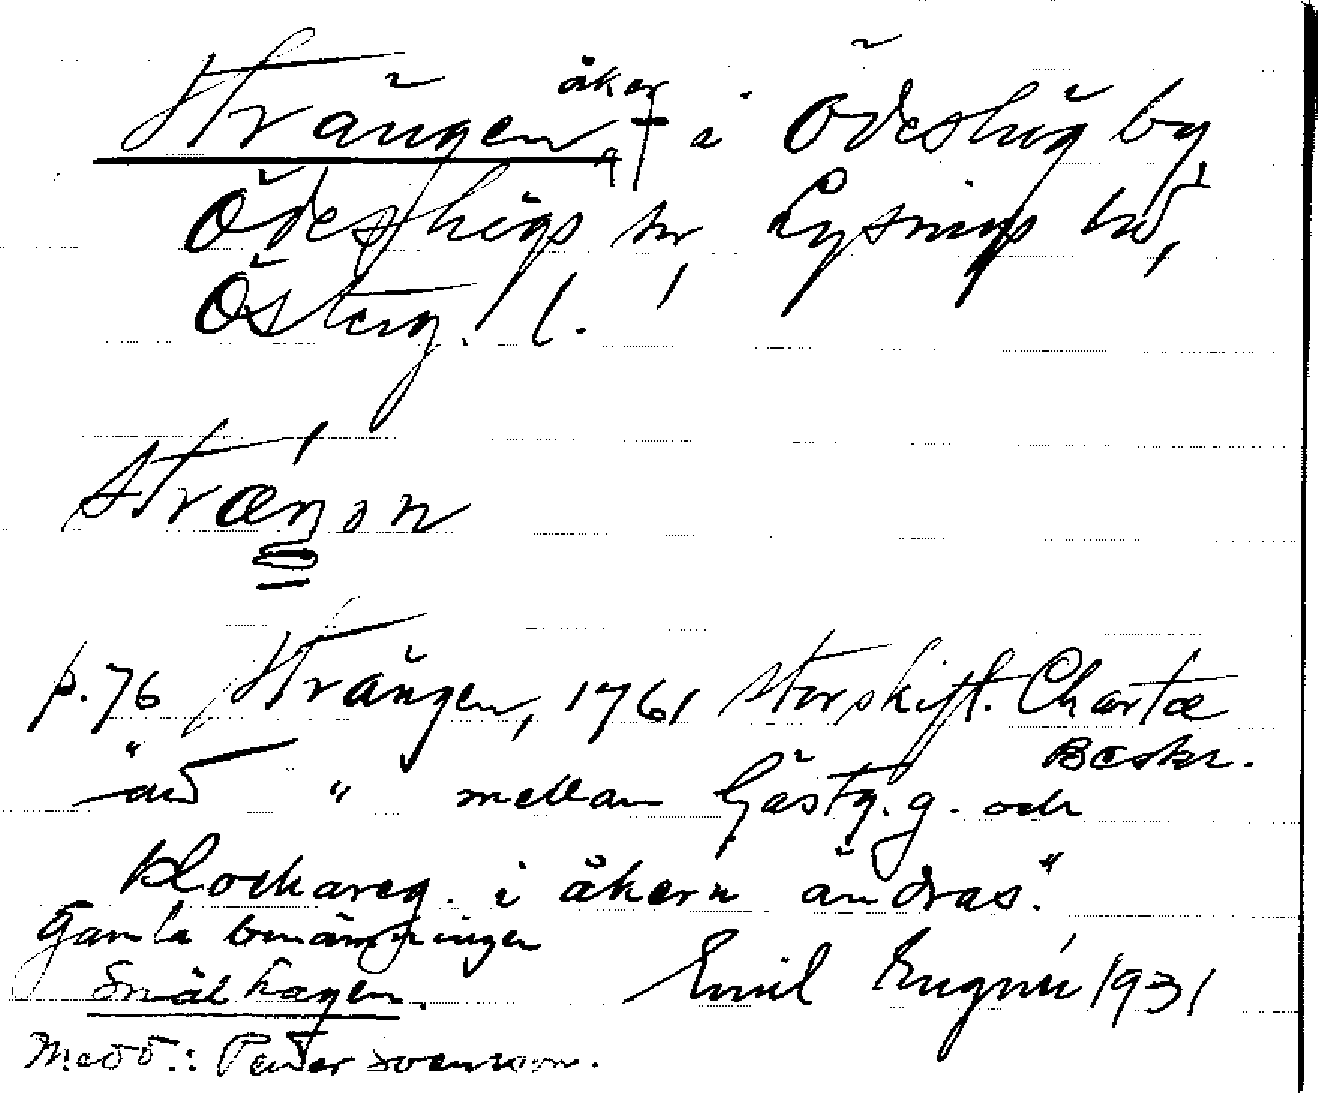 Strängen, åker † i Ödeshög by,
Ödeshögs sn, Lysings hd,
Österg. l.
stræŋən
p. 76 Strängen, 1761 storskift. Charta
Beskr.
"... " mellan Gästg.g. och
Klockareg. i åkern ändras."
Gamla benämningen
Smålhagen.
Emil Engnér 1931
Medd.: Peter Svensson.